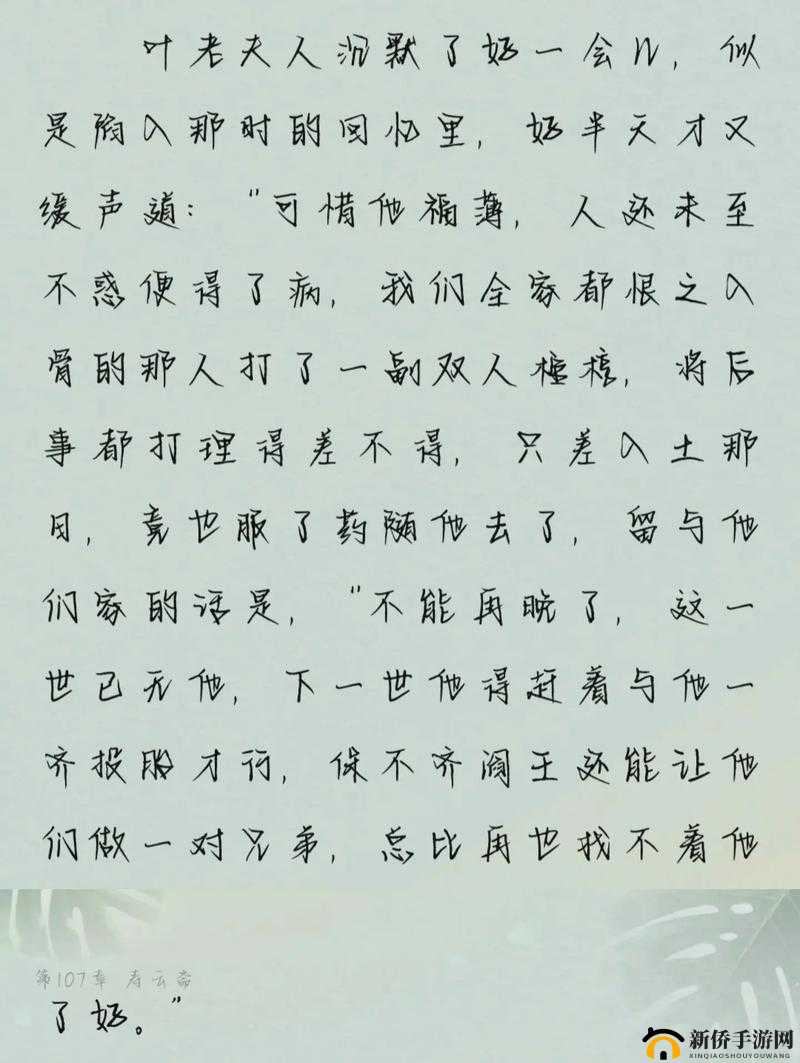 叶老夫人沉默了好一会儿，似
是陷入那时的回忆里，好半天才又
缓声道：“可惜他福薄，人还未至
不惑便得了病，我们全家都恨之入
骨的那人打了一副双人棺椁，将后
事都打理得差不得，只差入土那
日，竟也服了药随他去了，留与他
们家的话是，“不能再晚了，这一
世已无他，下一世他得赶着与他一
齐投胎才行，保不齐阎王还能让他
们做一对兄弟，总比再也找不着他
第107章 寿云斋
了好。”
新侨手游网
XINQIAOSHOUYOUWANG